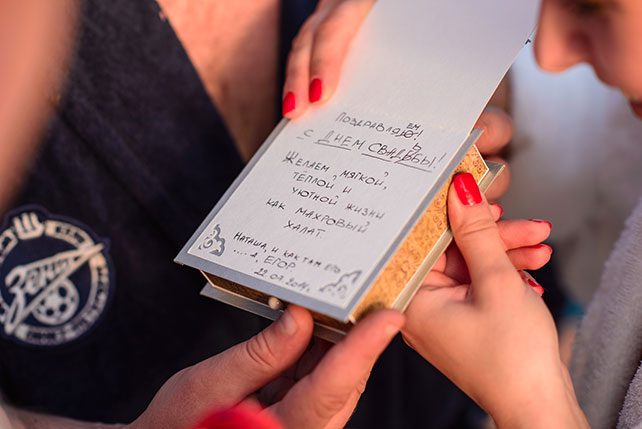 ПОЗДРАВЛЯЕМ!
С ДНЕМ СВАДЬБЫ!
ЖЕЛАЕМ МЯГКОЙ,
ТЁПЛОЙ И
УЮТНОЙ ЖИЗНИ
КАК МАХРОВЫЙ
ХАЛАТ
НАТАША, И КАК ТАМ ЕГО
.... А, ЕГОР
Зенит